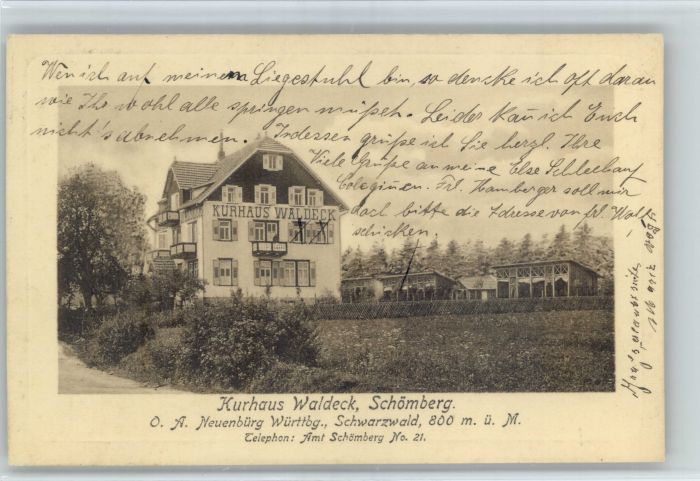 Wen ich auf meinem Liegestuhl bin, so dencke ich oft daran
wie Ihr wohl alle springen müßet. Leider kan ich Euch
nicht's abnehmen. Indessen grüße ich Sie herzl. Ihre
Viele Grüße an meine Else Schleehauf
Coleginen. Frl. Hamberger soll mir
doch bitte die Adresse von frl. Wolf
schicken.
KURHAUS WALDECK
Kurhaus Waldeck, Schömberg.
O. A. Neuenbürg Württbg., Schwarzwald, 800 m. ü. M.
Telephon: Amt Schömberg No. 21.